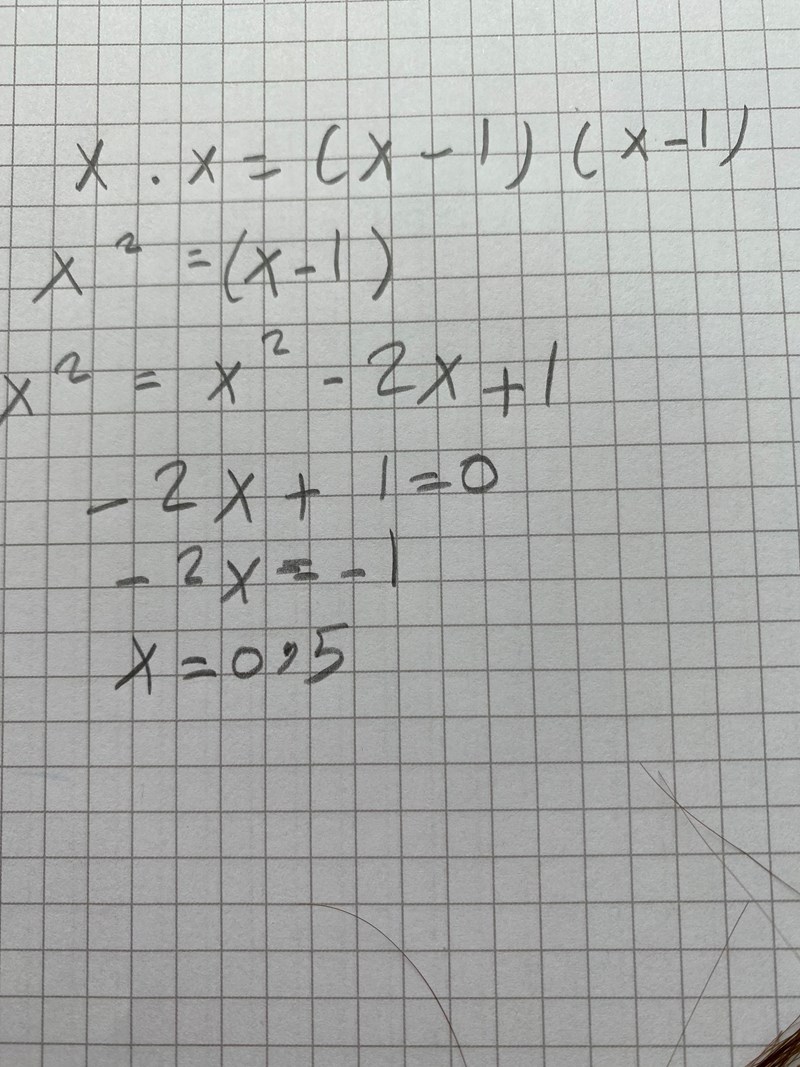 x · x = (x - 1) (x - 1)
x² = (x - 1)
x² = x² - 2x + 1
- 2x + 1 = 0
- 2x = - 1
x = 0,5